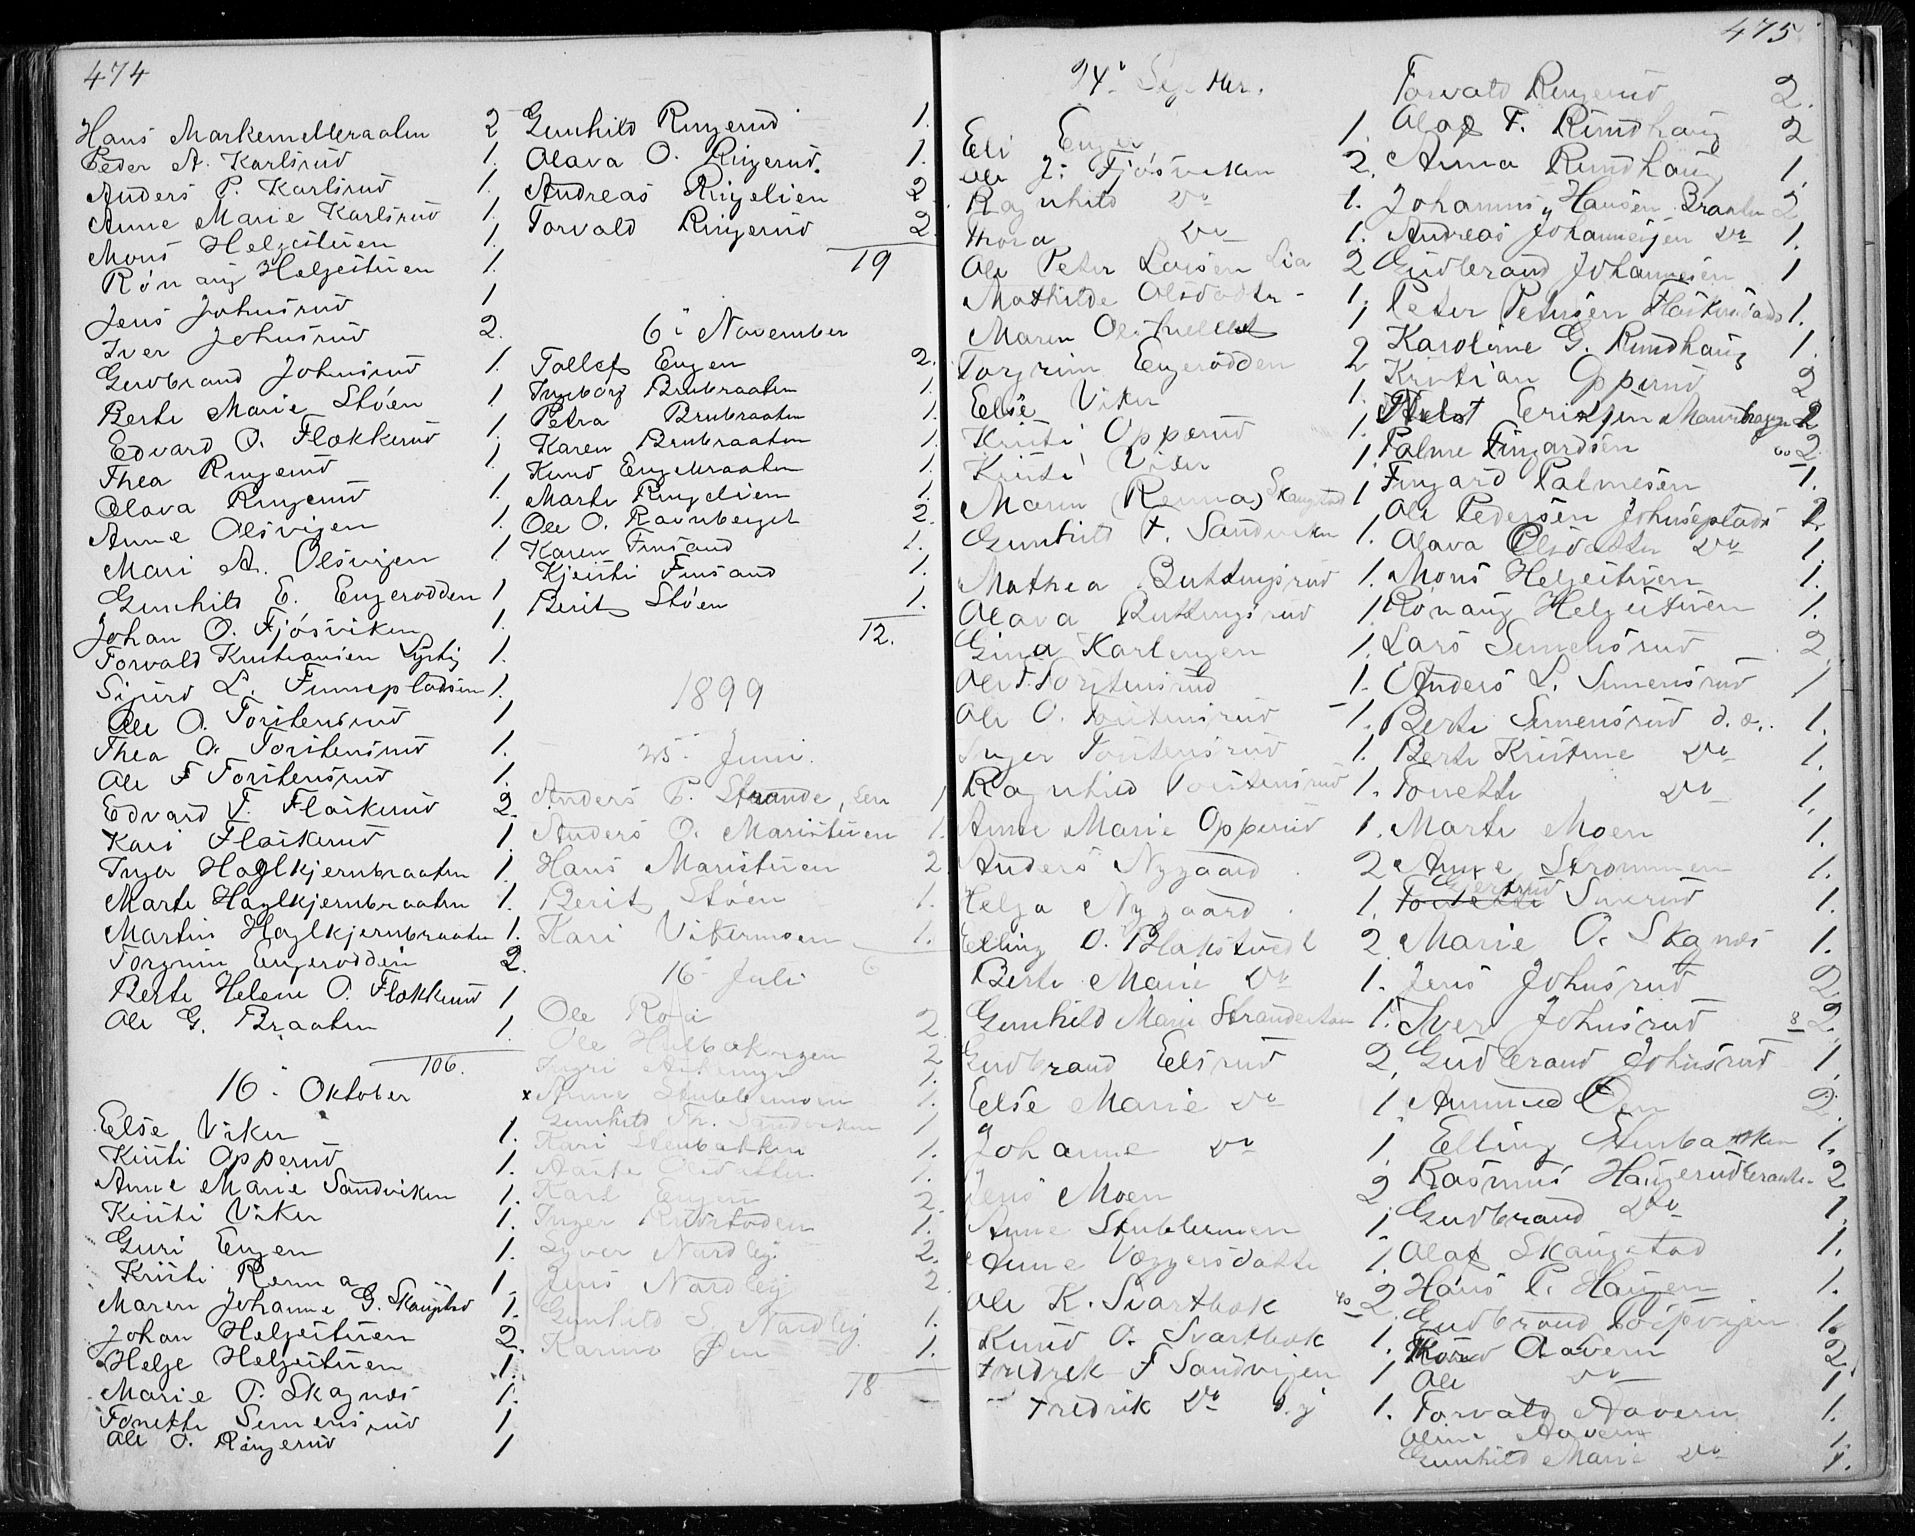 474
Hans Markemelleraaten 2
Peder A. Karlsrud 1.
Anders P. Karlsrud 1.
Anne Marie Karlsrud 1.
Mons Helgeituen 1.
Rónaug Helgeituen 1.
Jens Johnsrud 1
Iver Johnsrud 2.
Gudbrand Johnsrud 1.
Berte Marie Stóen 1
Edvard O. Flakkerud 1.
Thea Ringerud 1
Olava Ringerud 1.
Anne Olsvigen 1.
Mari A. Olsvigen 1
Gunhild E. Engerodden 1
Johan O. Fjósviken 1.
Torvald Kristiansen Lystig 1.
Sigurd L. Finnepladsen 1.
Ole O. Torstensrud 1
Thea O. Torstensrud 1.
Ole F Torstensrud 1.
Edvard T. Flaskerud 2.
Kari Flaskerud 1
Inger Haglkjernbraaten 1.
Marte Haglkjernbraaten 1.
Martin Haglkjernbraaten 1.
Torgrim Engerodden 2.
Berte Helene O. Flakkerud 1
Ole G. Braaten 1.
106.
16. Oktober
Else Viker 1.
Kristi Opperud 1.
Anne Marie Sandviken 1.
Kristi Viker 1.
Guri Engen 1.
Kristi Renna 1.
Maren Johanne G. Skaugstad 1.
Johan Helgeituen 2.
Helge Helgeituen 1.
Marie P. Skagnæs 1.
Tonette Semensrud 1
Ole O. Ringerud 1
Gunhild Ringerud 1.
Olava O. Ringerud. 1.
Andreas Ringelien 2
Torvald Ringerud 2
19
6. November
Tollef Engen 2.
Ingeborg Brubraaten 1.
Petra Brubraaten 1.
Karen Brubraaten 1.
Knud Engebraaten 1.
Marte Ringelien 1.
Ole O. Ravnberget 2.
Karen Finsand 1.
Kjersti Finsand 1.
Berit Stóen 1.
12.
1899
25. Juni.
Anders P. Strande, sen 1
Anders O. Maristuen 1.
Hans Maristuen 2
Berit Stóen 1.
Kari Vikermoen 1.
6
16. Juli
Ole Roa 2.
Ole Hulbakengen 2
1.
x Anne Stubbemoen 1.
Gunhild Th. Sandviken 1
Kari Stenbakken 1.
Olsdatter 1.
Karl Engen 2.
Inger Rudstoden 1.
Syver Nardlig 2.
Jens Nardlig 2
Gunhild S. Nardlig 1.
Karine Øen 1.
18
475
24. Septbr.
Eli Enger 1.
Ole J. Fjósviken 2.
Ragnhild Do 1.
Thora Do 1.
Ole Peter Larsen Lia 2
Mathilde Olsdatter 1.
Maren 1
Torgrim Engerodden 2
Else Viker 1.
Kristi Opperud 1.
Kristi Viker 1.
Maren (Renna) Skaugstad 1
Gunhild F. Sandviken 1.
Mathea Buttingsrud 1.
Olava Buttingsrud 1
Gina Karlengen 1.
Ole T. Torstensrud 1.
Ole O. Torstensrud 1.
Inger Torstensrud 1.
Ragnhild Torstensrud 1.
Anne Marie Opperud 1.
Anders Nygaard 2
Helga Nygaard 1.
Elling O. Blakstvedt 2
Berte Marie Do 1.
Gunhild Marie 1.
Gudbrand Elsrud 2.
Else Marie Do 1
Johanne Do 1.
Jens Moen 2
Anne Stubbemoen 1
Anne Væggersdatter 1.
Ole K. Svartbak 40 2
Knud O. Svartbak 1.
Fredrik F Sandvigen 1
Fredrik Do d.y 1.
Torvald Ringerud 2.
Olaf T. Rundhaug 2
Anna Rundhaug 1.
Johannes Hansen Braaten 2
Andreas Johannesen Do 1.
Gudbrand Johannesen 1
Peter Petersen 1.
Karoline G. Rundhaug 1.
Kristian Opperud 2
Eriksen 2
Palme Fingardsen 60 2
Fingard Palmesen 1.
Ole Pedersen Johnseplads 2
Olava Olsdatter Do 1
Mons Helgeituen 1.
Rónaug Helgeituen 1.
Lars Semensrud 2
Anders L. Semensrud 1
Berte Semensrud d.æ. 1.
Berte Kristine Do 1.
Tonette Do 1.
Marte Moen 1.
Anne Strommen 1.
Gjertrud Sinerud 1.
Marie O. Skagnæs 1.
Jens Johnsrud 2
Iver Johnsrud 8 2.
Gudbrand Johnsrud 1.
Ammund Øen 2.
Elling Stenbakken 1.
Rasmus Haugerudbraaten 2
Gudbrand Do 1.
Olaf Skaugstad 1.
Hans P. Haugen 1.
Gudbrand 1.
Aavern 2.
Ole Do 1
Torvald Aavern 1.
Oline Aavern 1.
Gunhild Marie Do 1.